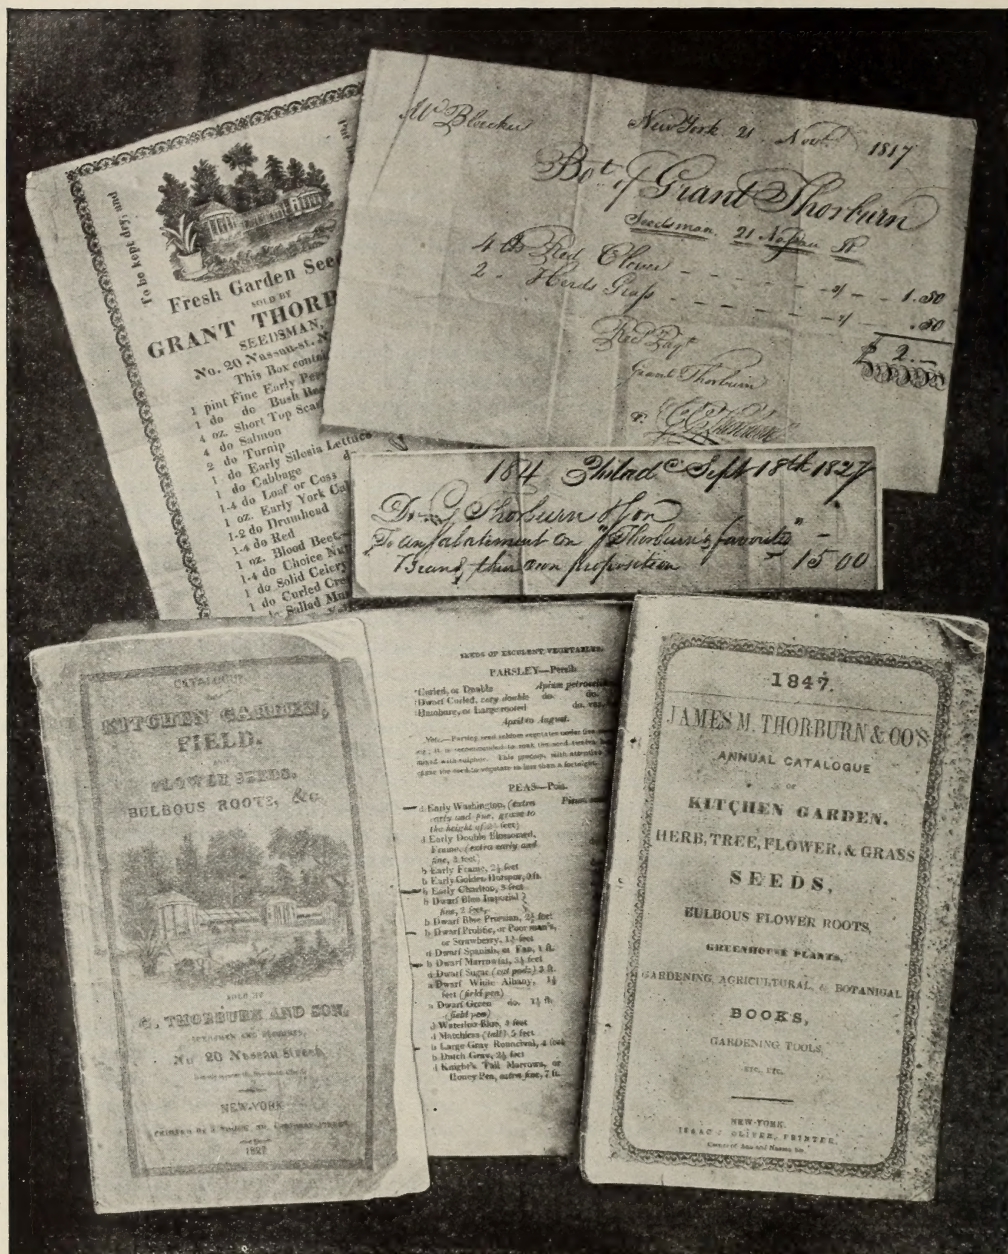 To be kept dry, and
Fresh Garden See
SOLD BY
GRANT THORB
SEEDSMAN,
No. 20 Nassau-st. N
This Box contai
1 pint Fine Early Pe
1 do do Bush Be
4 oz. Short Top Scar
4 do Salmon
2 do Turnip
1 do Early Silesia Lettuce
1 do Cabbage do
1-4 do Loaf or Coss
1 oz. Early York Ca
1-2 do Drumhead
1-4 do Red
1 oz. Blood Beet
1-4 do Choice Nu
1 do Solid Celery
1 do Curled Cre
do Sallad Mus
Mr Bleecker New York 21 Novr 1817
Bot of Grant Thorburn
Seedsman. 21 Nassau St
4 lb Red Clover - - - 1.50
2. Herds Grass - - - .50
2.-
Grant Thorburn
184 Philada Sept 18th 1827
Dr G Thorburn & Son
To an abatement on "Thorburn's favorites" -
their own proposition - 15 00
CATALOGUE
KITCHEN GARDEN,
FIELD,
AND
FLOWER SEEDS,
BULBOUS ROOTS, &c
SOLD BY
G. THORBURN AND SON,
SEEDSMEN AND FLORISTS,
No 20 Nassau Street,
NEW-YORK
PRINTED BY
SEEDS OF ESCULENT VEGETABLES.
PARSLEY—Persil.
Curled, or Double Apium petroselin
Dwarf Curled, very double do. do.
Hamburg, or Large rooted do. var.
April to August.
Note.—Parsley seed seldom vegetates under
it is recommended to soak the seed
mixed with sulphur. This process, with attention
the seed to vegetate in less than a fortnight.
PEAS—Pois.
d Early Washington, (extra
early and fine, grows to
the height of 2½ feet)
d Early Double Blossomed,
Frame, (extra early and
fine, 3 feet)
b Early Frame, 2½ feet
b Early Golden Hotspur, 3 ft.
b Early Charlton, 3 feet
b Dwarf Blue Imperial
fine, 2 feet,
b Dwarf Blue Prussian, 2½ feet
b Dwarf Prolific, or Poor man's,
or Strawberry, 1½ feet
d Dwarf Spanish, or Fan, 1 ft.
b Dwarf Marrowfat, 3½ feet
d Dwarf Sugar (eat pods) 3 ft.
a Dwarf White Albany, 1½
feet (field pea)
a Dwarf Green do. 1½ ft.
(field pea)
d Waterloo Blue, 4 feet
d Matchless (tall) 5 feet
b Large Gray Rouncival, 4 feet
b Dutch Gray, 2½ feet
d Knight's Tall Marrows, or
Honey Pea, extra fine, 7 ft.
1847.
JAMES M. THORBURN & CO'S
ANNUAL CATALOGUE
OF
KITCHEN GARDEN,
HERB, TREE, FLOWER, & GRASS
SEEDS,
BULBOUS FLOWER ROOTS,
GREENHOUSE PLANTS,
GARDENING, AGRICULTURAL, & BOTANICAL
BOOKS,
GARDENING TOOLS,
ETC. ETC.
NEW-YORK.
ISAAC J. OLIVER, PRINTER,